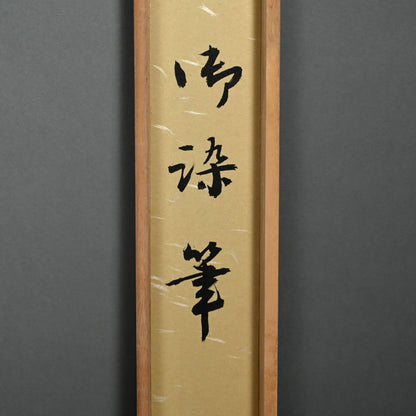 御染筆